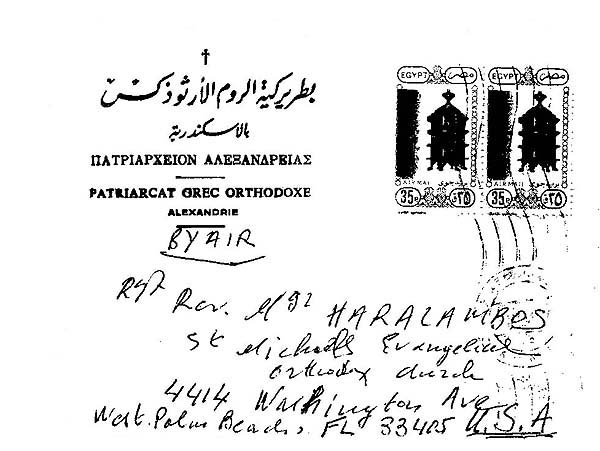 بطريركية الروم الأرثوذكس
بالاسكندرية
ΠΑΤΡΙΑΡΧΕΙΟΝ ΑΛΕΞΑΝΔΡΕΙΑΣ
PATRIARCAT GREC ORTHODOXE
ALEXANDRIE
BY AIR
EGYPT مصر EGYPT مصر
AIRMAIL AIRMAIL
35P ٣٥ 35P ٣٥
Rev. Mgr HARALAMBOS
St Michaels Evangelical
Orthodox church
4414 Washington Ave
West. Palm Beach. FL 33405 U.S.A